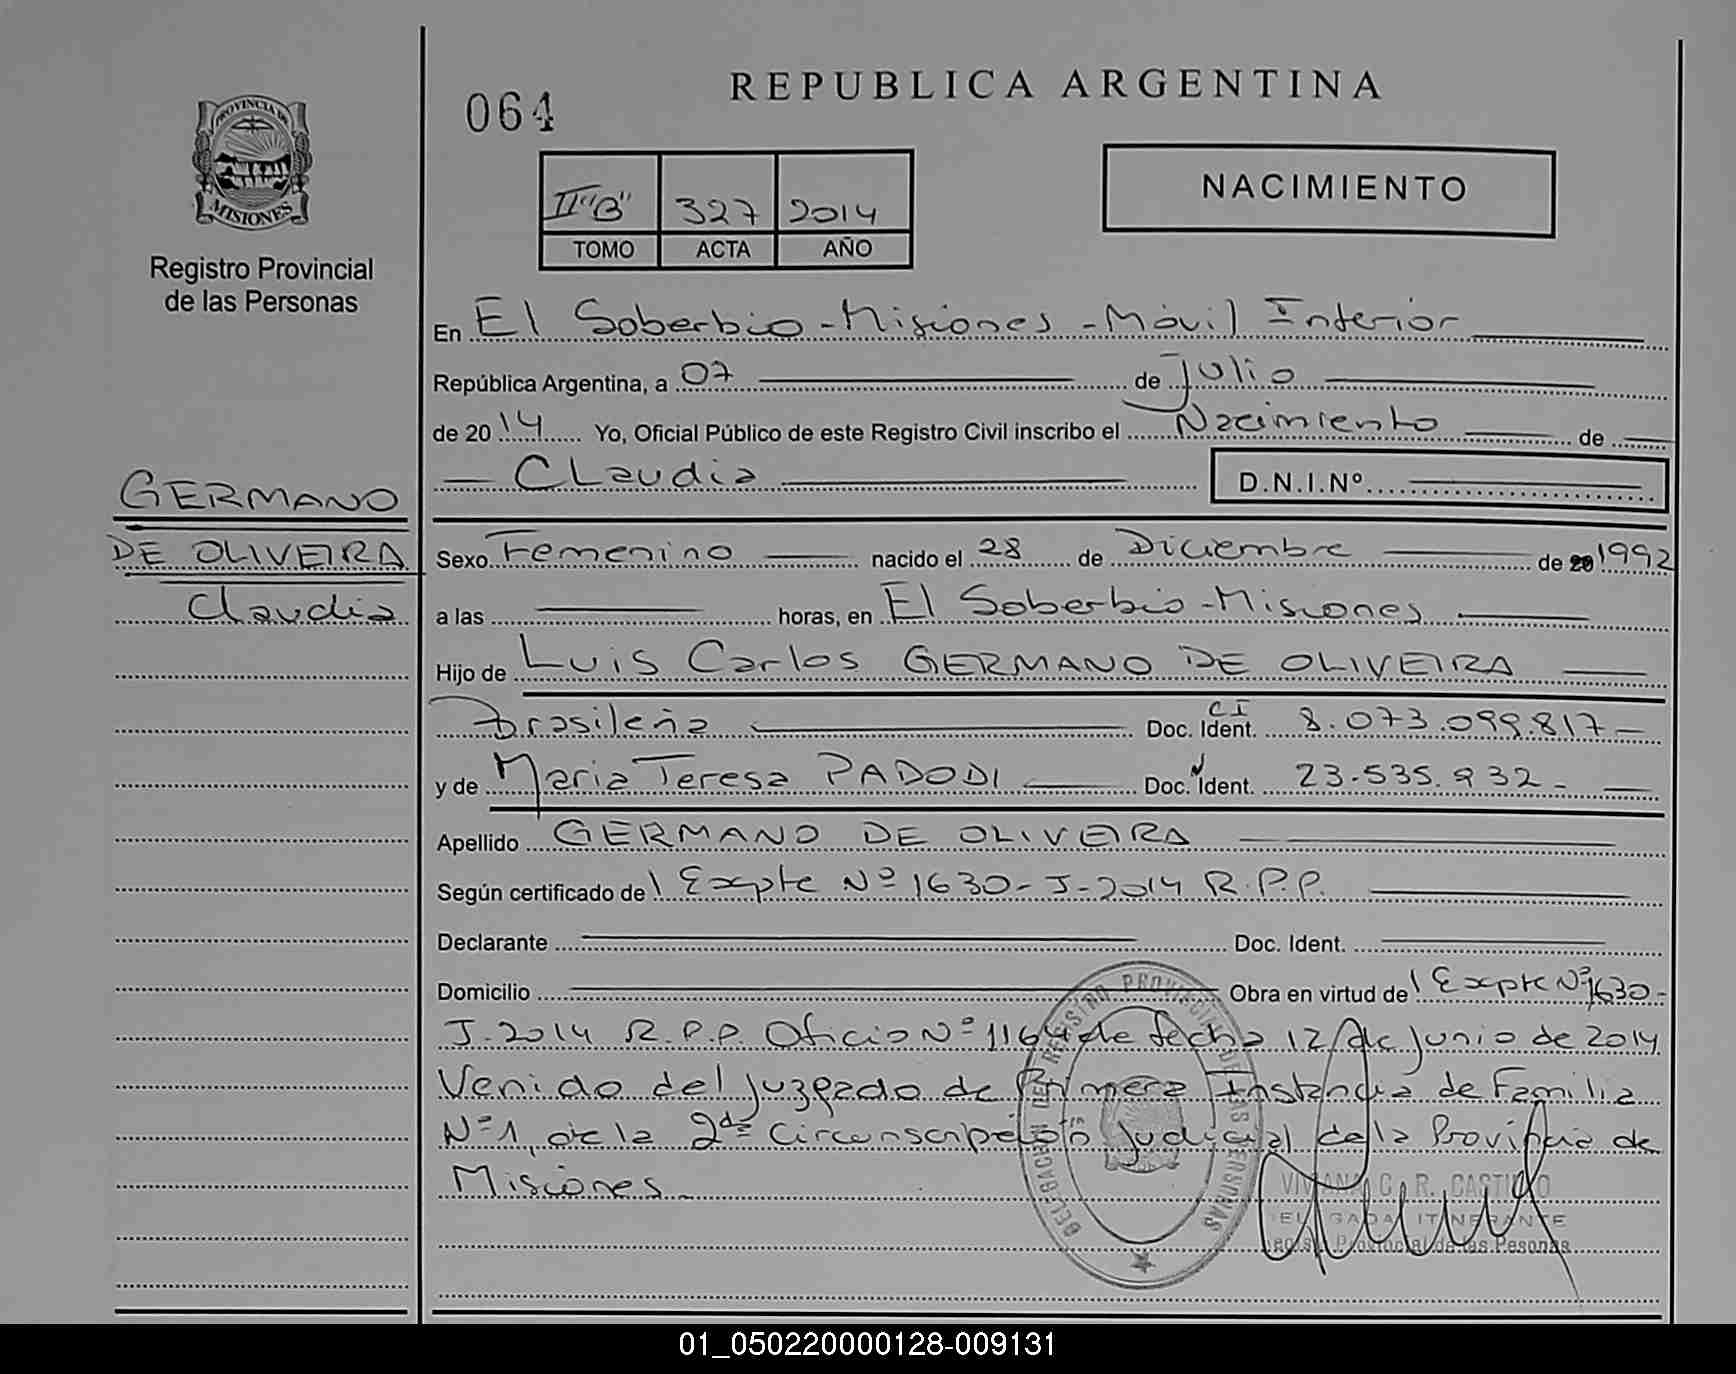 REPUBLICA ARGENTINA
064
PROVINCIA DE
MISIONES
NACIMIENTO
II "B" 327 2014
TOMO ACTA AÑO
Registro Provincial
de las Personas
En El Soberbio - Misiones - Móvil Interior
República Argentina, a 07 de Julio
de 2014 Yo, Oficial Público de este Registro Civil inscribo el Nacimiento de
Claudia D.N.I.Nº
GERMANO
DE OLIVEIRA
Claudia
Sexo Femenino nacido el 28 de Diciembre de 20 1992
a las horas, en El Soberbio - Misiones
Hijo de Luis Carlos GERMANO DE OLIVEIRA
Brasileña Doc. Ident. CI 8.073.099.817-
y de Maria Teresa PADODI Doc. Ident. 23.535.932-
Apellido GERMANO DE OLIVEIRA
Según certificado de Expte Nº 1630-J-2014 R.P.P.
Declarante Doc. Ident.
Domicilio Obra en virtud de Expte Nº 1630-
J-2014 R.P.P. Oficio Nº 1164 de fecha 12 de Junio de 2014
Venido del Juzgado de Primera Instancia de Familia
Nº 1, de la 2da Circunscripción Judicial de la Provincia de
Misiones.
DELEGACION DEL REGISTRO PROVINCIAL DE LAS PERSONAS
VIVIANA C. R. CASTILLO
DELEGADA ITINERANTE
Registro Provincial de las Pesonas
01_050220000128-009131